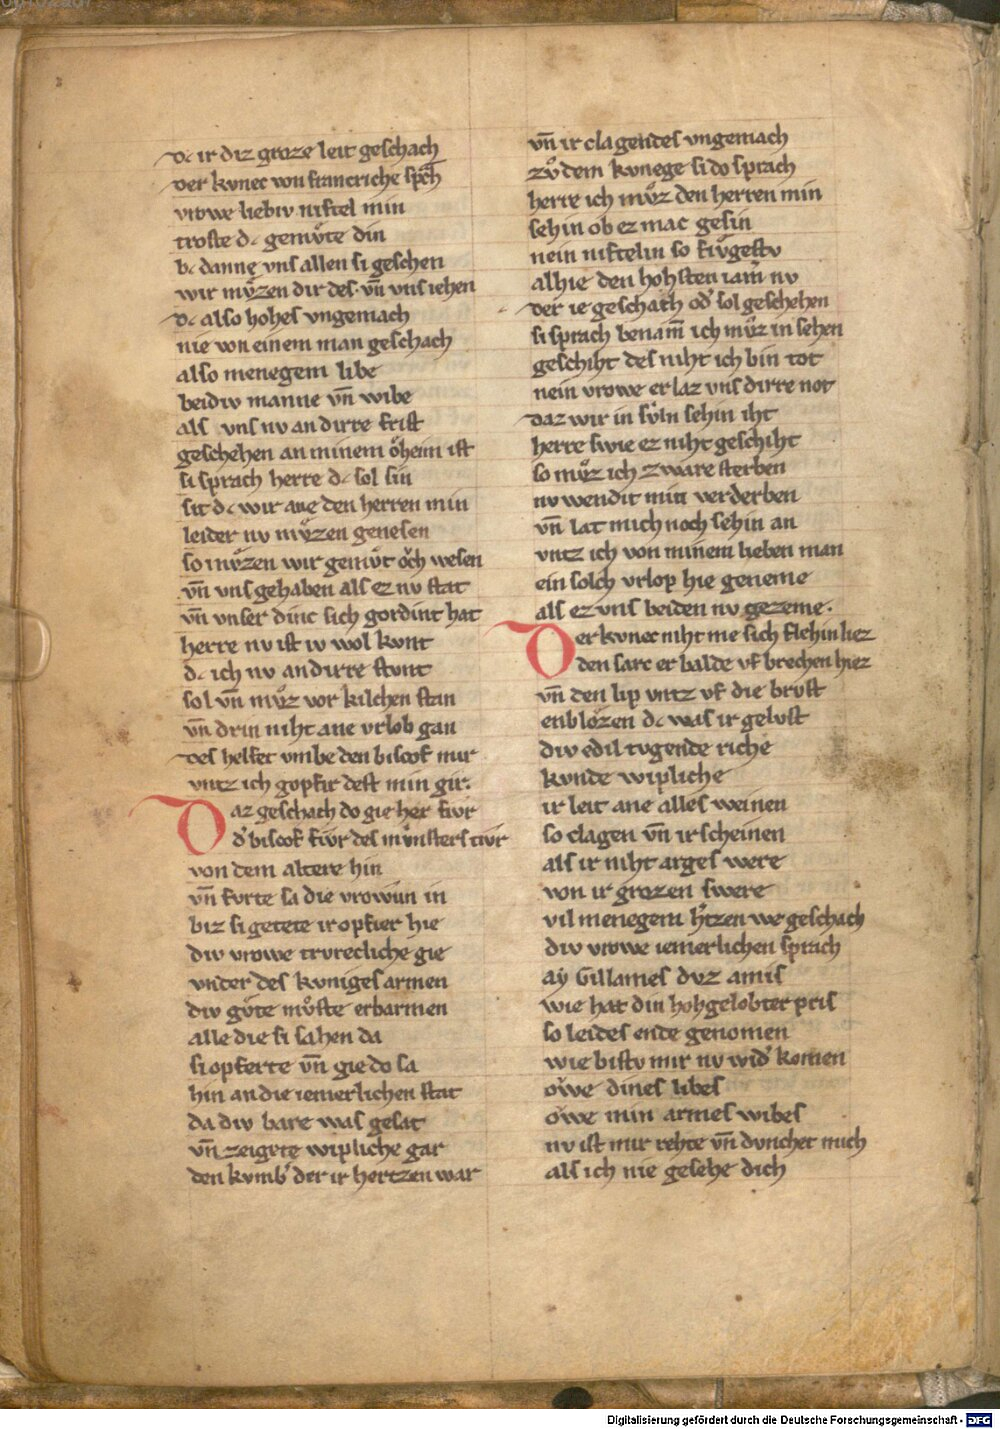 dc ir diz groze leit geschach
Der kvnec von francriche sp̄ch
vrowe liebiv niftel min
troste dc gemv̊te din
bc danne vns allen si geschen
wir mv̊zen dir des vn̄ vns iehen
Dc also hohes vngemach
nie von einem man geschach
also menegem libe
beidiv manne vn̄ wibe
als vns nv an dirre frist
geschehen an minem o̊heim ist
si sprach herre dc sol sin
sit dc wir ane den herren min
leider nv mv̊zen genesen
so mv̊zen wir gemv̊t o̊ch wesen
vn̄ vns gehaben als ez nv stat
vn̄ vnser dinc sich gordint hat
herre nv ist iv wol kvnt
dc ich nv an dirre stvnt
sol vn̄ mv̊z vor kilchen stan
vn̄ drin niht ane vrlob gan
Des helfet vmbe den biscof mir
vntz ich gopfir dest min gir.
Daz geschach do gie her fivr
d̓ biscof fivr des mv̊nsters tivr
von dem altere hin
vn̄ fvrte sa die vrowun in
biz si getete ir opfier hie
div vrowe trvrecliche gie
vnder des kvniges armen
div gv̊te mv̊ste erbarmen
alle die si sahen da
si opferte vn̄ gie do sa
hin an die iemerlichen stat
da div bare was gesat
vn̄ zeigete wipliche gar
den kvmb̓ der ir hertzen war
vn̄ ir clagendes vngemach
zv̊ dem kvnege si do sprach
herre ich mv̊z den herren min
sehin ob ez mac gesin
nein niftelin so fivgestv
alhie den hohsten iam̓ nv
Der ie geschach od̓ sol geschehen
si sprach benam̄ ich mv̊z in sehen
geschiht des niht ich bin tot
nein vrowe erlaz vns dirre not
Daz wir in svln sehin iht
herre swie ez niht geschiht
so mv̊z ich zware sterben
nv wendit min verderben
vn̄ lat mich noch sehin an
vntz ich von minem lieben man
ein solch vrlop hie geneme
als ez vns beiden nv gezeme.
Der kvnec niht me sich flehin liez
den sarc er balde vf brechen hiez
vn̄ den lip vntz vf die brvst
enblo̊zen dc was ir gelvst
div edil tvgende riche
kvnde wipliche
ir leit ane alles weinen
so clagen vn̄ irscheinen
als ir niht arges were
von ir grozen swere
vil menegem h̓tzen we geschach
div vrowe iemerlichen sprach
ay Gillames dvz amis
wie hat din hohgelobter pris
so leides ende genomen
wie bistv mir nv wid̓ komen
owe dines libes
owe min armes wibes
nv ist mir rehte vn̄ dvnchet mich
als ich nie gesehe dich
Digitalisierung gefördert durch die Deutsche Forschungsgemeinschaft - DFG